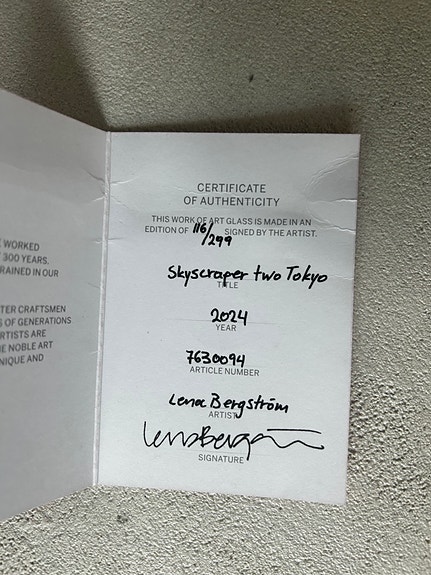 WORKED
300 YEARS.
RAINED IN OUR
TER CRAFTSMEN
S OF GENERATIONS
RTISTS ARE
E NOBLE ART
NIQUE AND
CERTIFICATE
OF AUTHENTICITY
THIS WORK OF ART GLASS IS MADE IN AN
EDITION OF 116/299 SIGNED BY THE ARTIST.
Skyscraper two Tokyo
TITLE
2024
YEAR
7630094
ARTICLE NUMBER
Lena Bergström
ARTIST
SIGNATURE